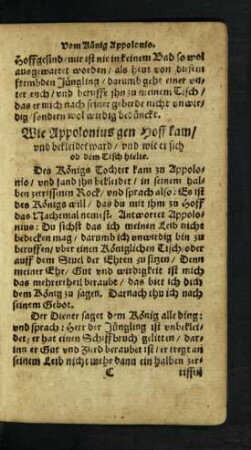 Vom König Appolonio.
Hoffgesind / mir ist nie in keinem Bad so wol
außgewartet worden / als heut von diesem
frembden Jüngling / darumb gehe einer vn-
ter euch / vnd beruffe jhn zu meinem Tisch /
das er mich nach seiner geberde nicht vnwir-
dig / sondern wol wirdig bedünckt.
Wie Appolonius gen Hoff kam /
vnd bekleidet ward / vnd wie er sich
ob dem Tisch hielte.
Des Königs Tochter kam zu Appolo-
nio / vnd fand jhn bekleidet / in seinem hal-
ben zerrissnen Rock / vnd sprach also: Es ist
des Königs will / das du mit jhm zu Hoff
das Nachtmal nemist. Antwortet Appolo-
nius: Du sichst das ich meinen Leib nicht
bedecken mag / darumb ich vnwirdig bin zu
beruffen / vber einen Königlichen Tisch / oder
auff dem Stuel der Ehren zu sitzen / Denn
meiner Ehr / Gut vnd wirdigkeit ist mich
das mehrertheil beraubt / das bitt ich dich
dem König zu sagen. Darnach thu ich nach
seinem Gebot.
Der Diener saget dem König alle ding:
vnd sprach: Herr der Jüngling ist vnbeklei-
det / er hat einen Schiffbruch gelitten / dar-
inn er Gut vnd Pferd beraubet ist / er tregt an
seinem Leib nicht mehr dann ein halben zer-
C rissen